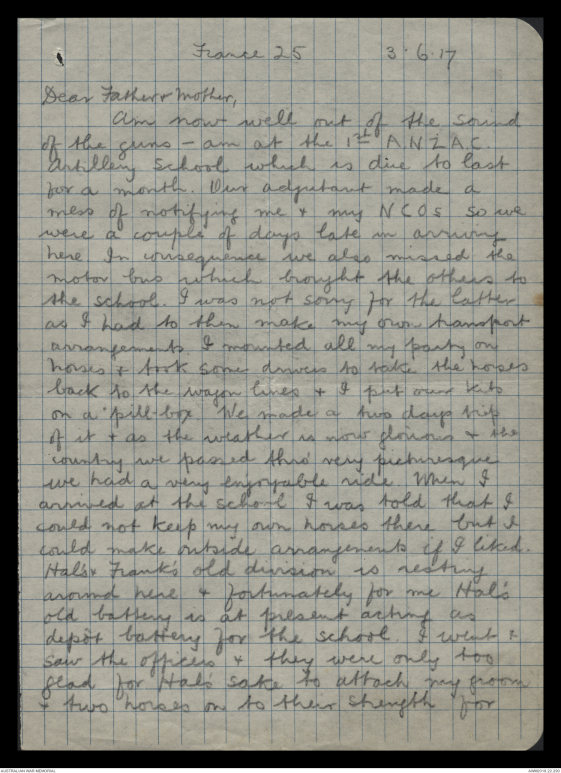 France 25 3.6.17
Dear Father & Mother,
Am now well out of the sound
of the guns - am at the 1st A.N.Z.A.C.
Artillery School which is due to last
for a month. Our adjutant made a
mess of notifying me & my NCOs so we
were a couple of days late in arriving
here In consequence we also missed the
motor bus which brought the others to
the school. I was not sorry for the latter
as I had to then make my own transport
arrangements. I mounted all my party on
horses & took some drivers to take the horses
back to the wagon lines & I put our kits
on a "pill-box. We made a two days trip
of it & as the weather is now glorious & the
country we passed thro' very picturesque
we had a very enjoyable ride. When I
arrived at the school I was told that I
could not keep my own horses there but I
could make outside arrangements if I liked.
Hal's & Frank's old division is resting
around here & fortunately for me Hal's
old battery is at present acting as
depôt battery for the school. I went &
saw the officers & they were only too
glad for Hal's sake to attach my groom
& two horses on to their strength for
AUSTRALIAN WAR MEMORIAL